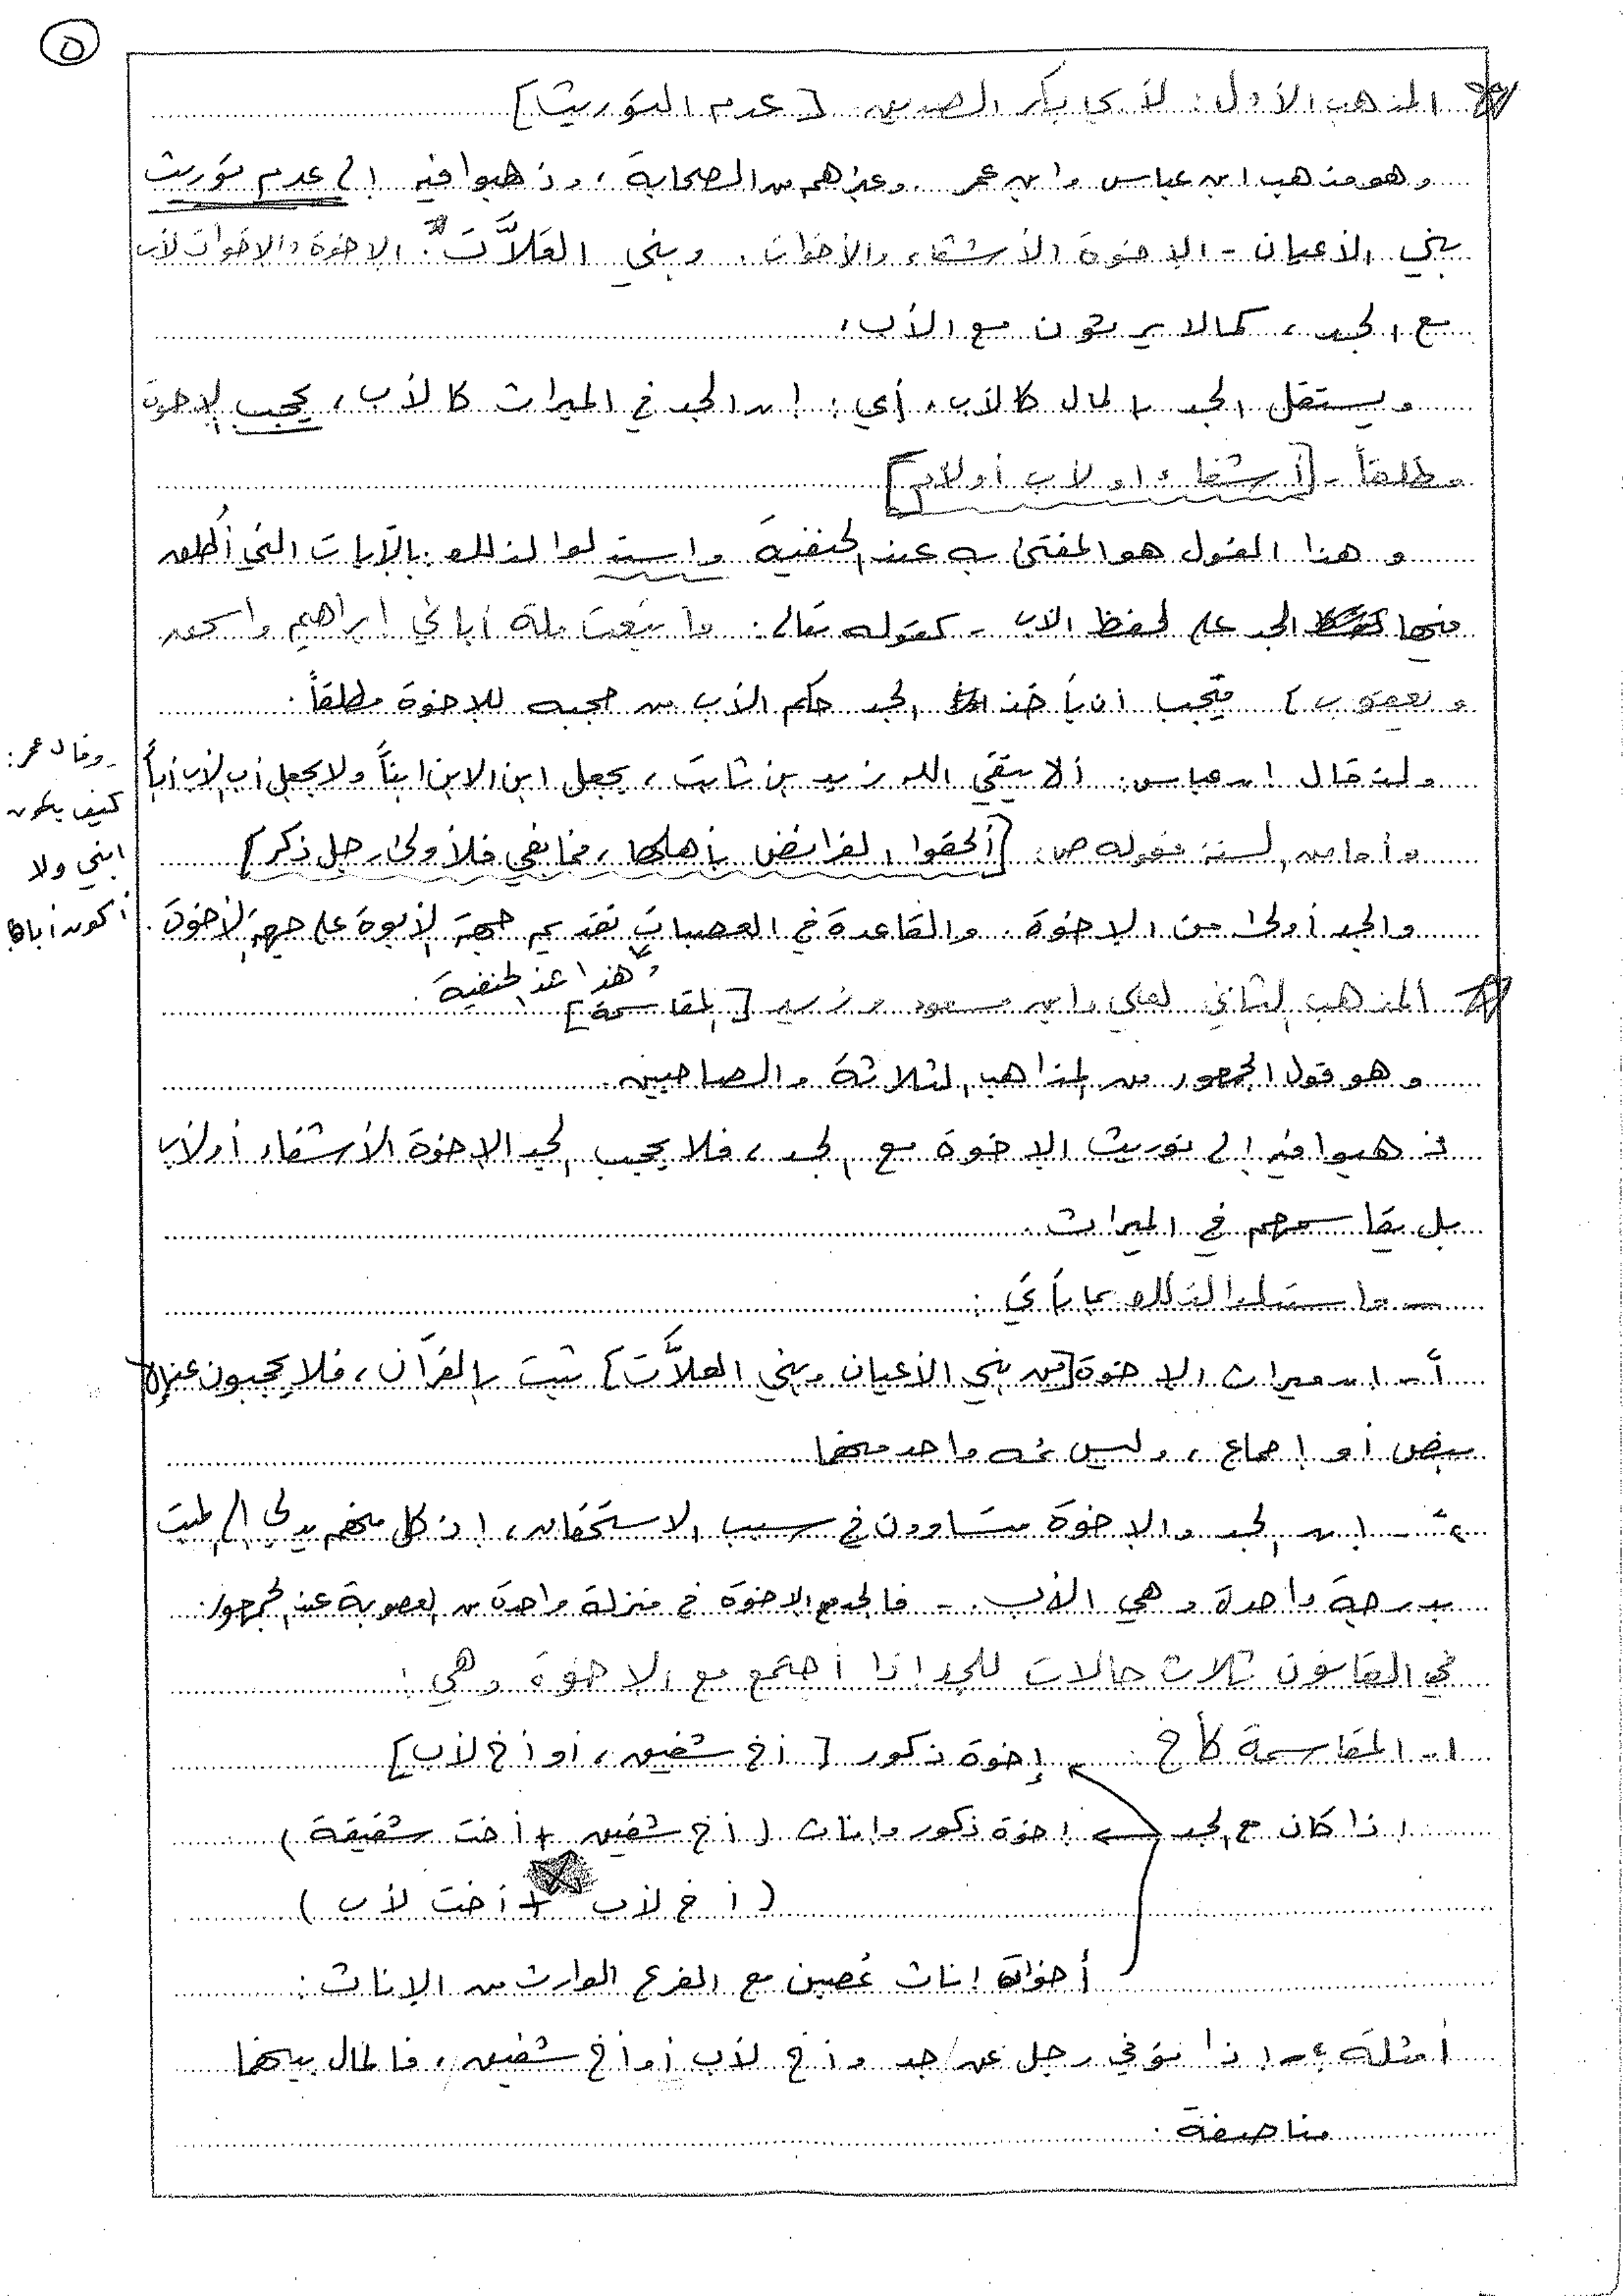 ٥
المذهب الأول: لأبي بكر الصديق [عدم التوريث]
وهو مذهب ابن عباس وابن عمر وغيرهم من الصحابة، وذهبوا فيه إلى عدم توريث
بني الأعيان - الإخوة الأشقاء والأخوات. وبني العَلاَّتَ: الإخوة والإخوات لأب
مع الجد، كما لا يرثون مع الأب،
ويستقل الجد بالمال كالأب، أي: إن الجد في الميراث كالأب، يحجب الإخوة
مطلقاً - [أشقاء أو لأب أو لأم]
وهذا القول هو المفتى به عند الحنفية واستدلوا لذلك: بالآيات التي أُطلق
فيها الجد على لفظ الأب - كقوله تعالى: واتبعت ملة آبائي ابراهيم واسحق
ويعقوب] فيجب أن يأخذ الجد حكم الأب من حجبه للإخوة مطلقاً.
ولذ قال ابن عباس: ألا يتقي الله زيد بن ثابت، يجعل ابن الابن ابناً ولا يجعل أب الأب أباً
وأما من السنة فقوله ص: [ألحقوا الفرائض بأهلها، فما بقي فلأولى رجل ذكر]
والجد أولى من الإخوة. والقاعدة في العصبات تقديم جهة الأبوة على جهة الأخوة.
وهذا عند الحنفية.
- وقال عمر:
كيف يكون
ابني ولا
أكون أباه
المذهب الثاني لعلي وابن مسعود وزيد [المقاسمة]
وهو قول الجمهور من المذاهب الثلاثة والصاحبين.
ذهبوا فيه إلى توريث الإخوة مع الجد، فلا يحجب الجد الإخوة الأشقاء أو لأب
بل يقاسمهم في الميراث.
- واستدلوا لذلك بما يأتي:
أ - إن ميراث الإخوة [من بني الأعيان وبني العلاَّت] ثبت بالقرآن، فلا يحجبون عنه إلا
بنص أو إجماع، وليس ثمه واحد منهما
- إن الجد والإخوة متساوون في سبب الاستحقاق، إذ كل منهم يدلي إلى الميت
بدرجة واحدة وهي الأب. - فالجد مع الإخوة في منزلة واحدة من العصوبة عند الجمهور.
في القانون ثلاث حالات للجد اذا اجتمع مع الإخوة وهي:
١- المقاسمة كأخ إخوة ذكور [أخ شقيق، أو أخ لأب]
إذا كان مع الجد ← إخوة ذكور وإناث (أخ شقيق + أخت شقيقة)
(أخ لأب + أخت لأب)
أخوات إناث عُصبن مع الفرع الوارث من الإناث:
أمثلة: إذا توفي رجل عن / جد وأخ لأب أو أخ شقيق، فالمال بينهما
مناصفة.